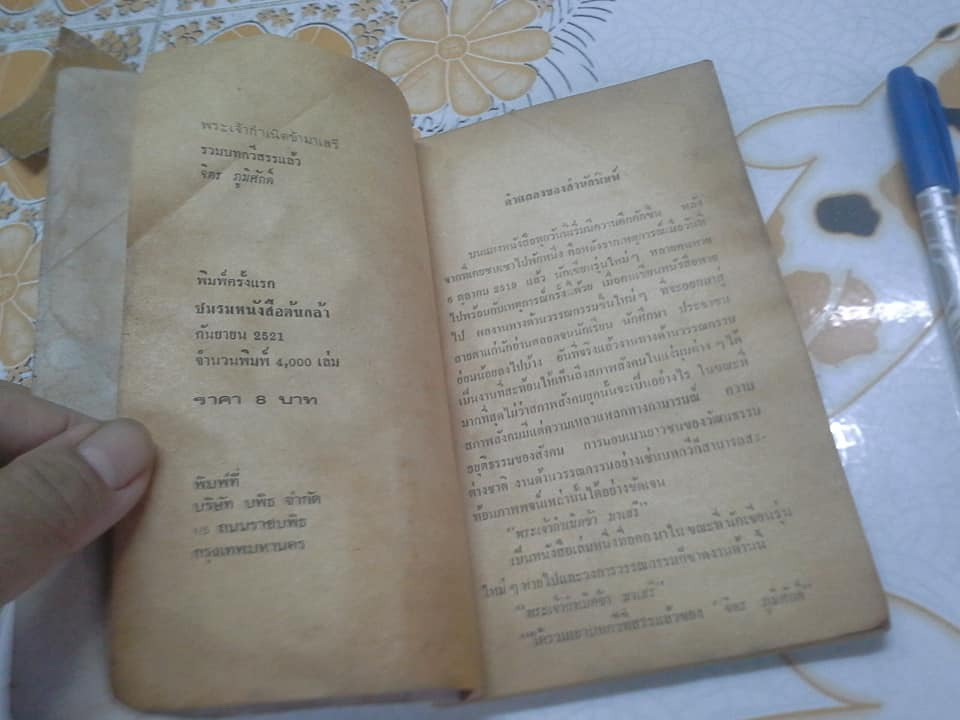 พระเจ้ากำเนิดข้ามาเสรี
รวมบทกวีสรรแล้ว
จิตร ภูมิศักดิ์
พิมพ์ครั้งแรก
ชมรมหนังสือต้นกล้า
กันยายน 2521
จำนวนพิมพ์ 4,000 เล่ม
ราคา 8 บาท
พิมพ์ที่
บริษัท บพิธ จำกัด
ถนนราชบพิธ
กรุงเทพมหานคร
คำแถลงของสำนักพิมพ์
บนแผงหนังสือทุกวันนี้เริ่มมีความคึกคักขึ้น หลัง
จากที่เคยซบเซาไปพักหนึ่ง คือหลังจากเหตุการณ์เมื่อวันที่
6 ตุลาคม 2519 แล้ว นักเขียนรุ่นใหม่ๆ หลายคนหาย
ไปพร้อมกับเหตุการณ์ครั้งนี้ด้วย เมื่อคนเขียนหนังสือหาย
ไป ผลงานทางด้านวรรณกรรมชิ้นใหม่ๆ ที่จะออกมาสู่
สายตาแก่นักอ่านตลอดจนนักเรียน นักศึกษา ประชาชน
ย่อมน้อยลงไปบ้าง อันที่จริงแล้วงานทางด้านวรรณกรรม
เป็นงานที่สะท้อนให้เห็นถึงสภาพสังคมในแง่มุมต่าง ๆ ได้
มากที่สุดไม่ว่าสภาพสังคมยุคนั้นจะเป็นอย่างไร ในขณะที่
สภาพสังคมมีแต่ความเหลวแหลกทางกามารมณ์ ความ
อยุติธรรมของสังคม การมอมเมาเยาวชนของวัฒนธรรม
ต่างชาติ งานด้านวรรณกรรมอย่างเช่นบทกวีก็สามารถสะ-
ท้อนภาพพจน์เหล่านั้นได้อย่างชัดเจน
"พระเจ้ากำเนิดข้า มาเสรี"
เป็นหนังสือเล่มหนึ่งที่ออกมาในขณะที่นักเขียนรุ่น
ใหม่ ๆ หายไปและวงการวรรณกรรมก็ขาดงานด้านนี้
"พระเจ้ากำเนิดข้า มาเสรี"
ได้รวมเอาบทกวีที่สรรแล้วของ "จิตร ภูมิศักดิ์"